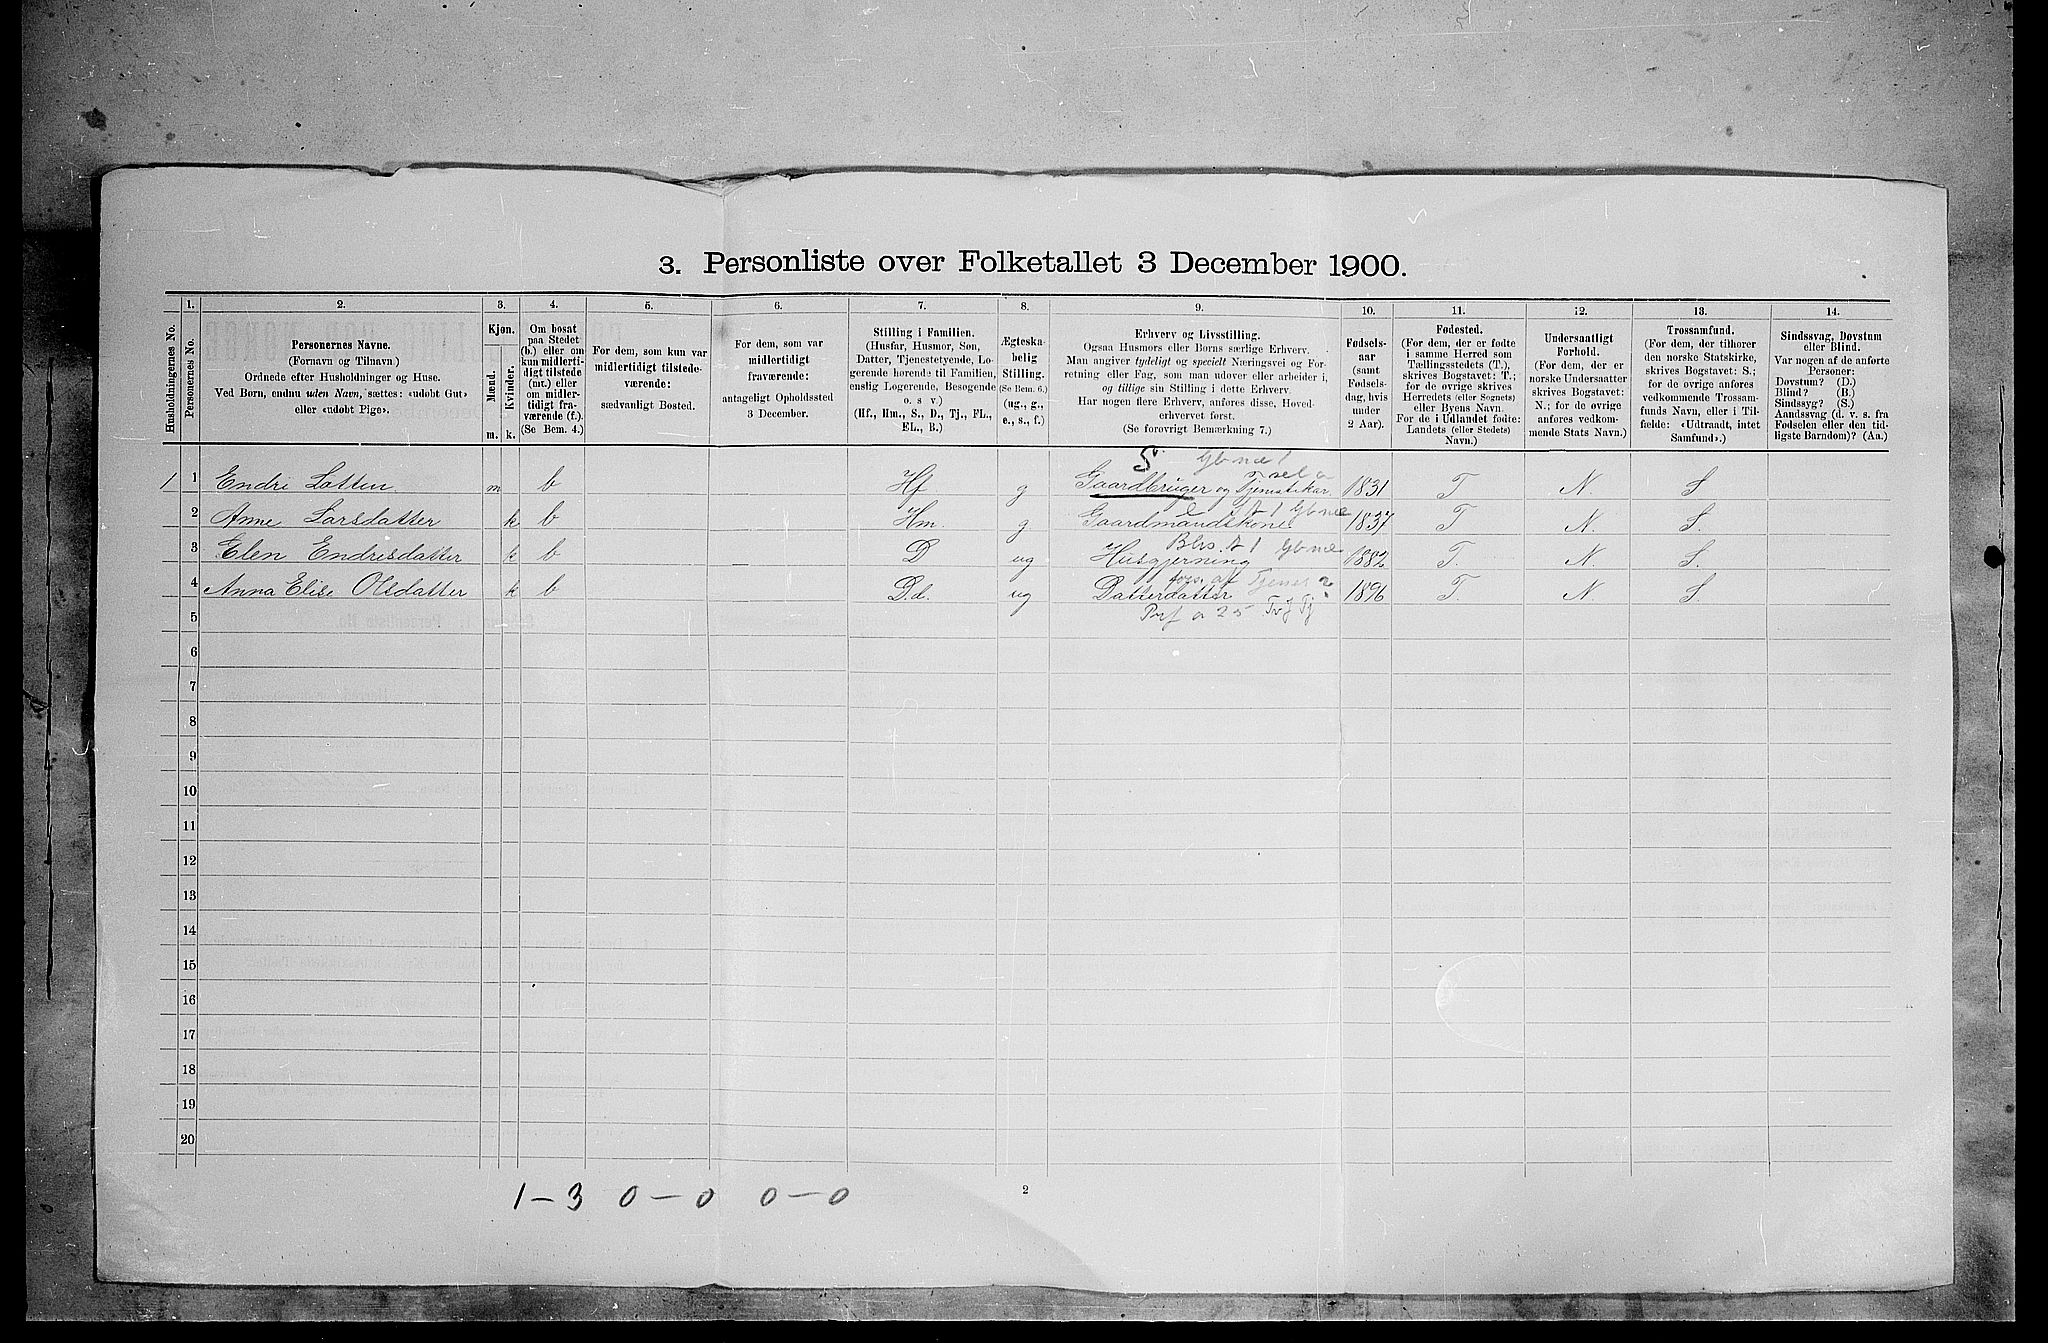 3. Personliste over Folketallet 3 December 1900.
Husholdningernes No.
1.
Personernes No.
2.
Personernes Navne.
(Fornavn og Tilnavn.)
Ordnede efter Husholdninger og Huse.
Ved Børn, endnu uden Navn, sættes: «udobt Gut»
eller «udobt Pige».
3.
Kjøn.
Mænd.
Kvinder.
m. k.
4.
Om bosat
paa Stedet
(b.) eller om
kun midlerti-
digt tilstede
(mt.) eller
om midler-
tidigt fra-
værende (f.).
(Se Bem. 4.)
5.
For dem, som kun var
midlertidigt tilstede-
værende:
sædvanligt Bosted.
6.
For dem, som var
midlertidigt
fraværende:
antageligt Opholdssted
3 December.
7.
Stilling i Familien.
(Husfar, Husmor, Søn,
Datter, Tjenestetyende, Lo-
gerende hørende til Familien,
enslig Logerende, Besøgende
o. s. v.)
(Hf., Hm., S., D., Tj., FL.,
EL., B.)
8.
Ægteska-
belig
Stilling.
(Se Bem. 6.)
(ug., g.,
e., s., f.)
9.
Erhverv og Livsstilling.
Ogsaa Husmors eller Børns særlige Erhverv.
Man angiver tydeligt og specielt Næringsvei og For-
retning eller Fag, som man udøver eller arbeider i,
og tillige sin Stilling i dette Erhverv.
Har nogen flere Erhverv, anføres disse, Hoved-
erhvervet først.
(Se forøvrigt Bemærkning 7.)
10.
Fødsels-
aar
(samt
Fødsels-
dag, hvis
under
2 Aar).
11.
Fødested.
(For dem, der er fødte
i samme Herred som
Tællingsstedets (T.),
skrives Bogstavet: T.;
for de øvrige skrives
Herredets (eller Sognets)
eller Byens Navn.
For de i Udlandet fødte:
Landets (eller Stedets)
Navn.)
12.
Undersaatligt
Forhold.
(For dem, der er
norske Undersaatter
skrives Bogstavet:
N.; for de øvrige
anføres vedkom-
mende Stats Navn.)
13.
Trossamfund.
(For dem, der tilhører
den norske Statskirke,
skrives Bogstavet: S.;
for de øvrige anføres
vedkommende Trossam-
funds Navn, eller i Til-
fælde: «Udtraadt, intet
Samfund».)
14.
Sindssvag, Døvstum
eller Blind.
Var nogen af de anførte
Personer:
Døvstum? (D.)
Blind? (B.)
Sindssyg? (S.)
Aandssvag (d. v. s. fra
Fødselen eller den tid-
ligste Barndom)? (Aa.)
S. Gbnæ 1
1 1 Endri Latten m b Hf g Gaardbruger og Tjenestekar 1831 T N. S
2 Anne Larsdatter k b Hm. g Gaardmandskone 1837 T N. S.
3 Elen Endrisdatter k b D ug Husgjerning 1882 T. N. S.
4 Anna Elise Olsdatter k b D.d. ug Datterdatter 1896 T. N. S.
5
6
7
8
9
10
11
12
13
14
15
16
17
18
19
20
1-3 0-0 0-0
2